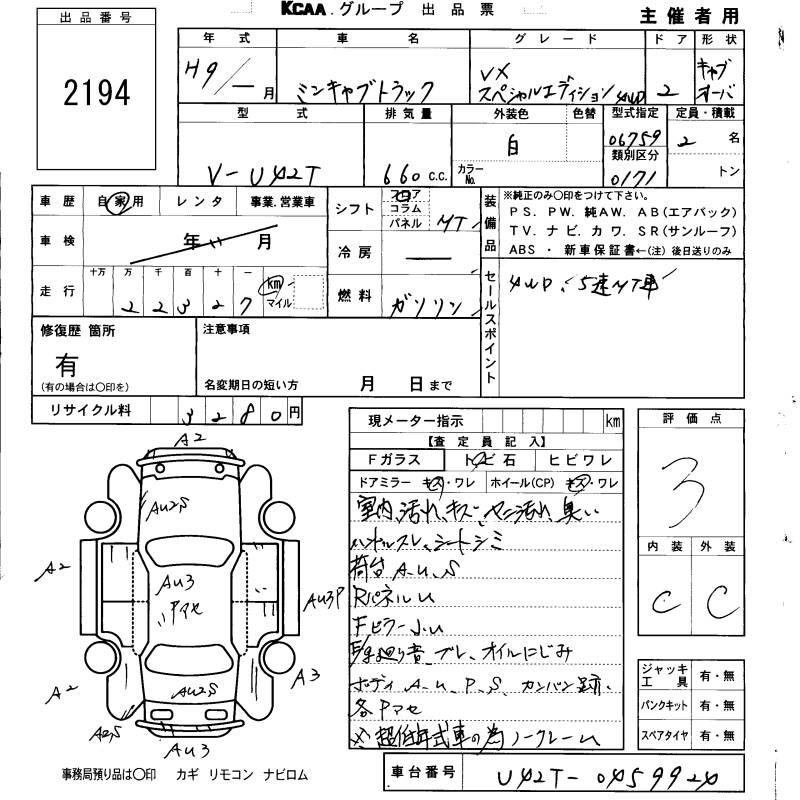 KCAA.グループ 出品票
主催者用
出品番号
2194
年式 車名 グレード ドア 形状
H9/ー月 ミンキャブトラック VX スペシャルエディション 4WD 2 キャブオーバ
型式 排気量 外装色 色替 型式指定 定員・積載
V-U42T 660 c.c. カラーNo. 白 06759 2 名
類別区分
0171 トン
車歴 自家用 レンタ 事業.営業車
シフト フロア コラム パネル MT
装備品
※純正のみ○印をつけて下さい。
PS. PW. 純AW. AB(エアバック)
TV. ナビ. カワ. SR(サンルーフ)
ABS・新車保証書←(注)後日送りのみ
車検 年 月
冷房 ー
走行 十万 万 千 百 十 一
22327 km マイル
燃料 ガソリン
セールスポイント
4WD、5速MT車
修復歴 箇所
有
(有の場合は○印を)
注意事項
名変期日の短い方 月 日まで
リサイクル料 3280円
現メーター指示 km
【査定員記入】
Fガラス トビ石 ヒビワレ
ドアミラー キズ・ワレ ホイール(CP) キズ・ワレ
室内、汚れ、キズ、ヤニ汚れ、臭い
ハンドルスレ、シートシミ
荷台 A.U.S
RパネルU
Fピラー小U
音、ブレ、オイルにじみ
ボディ A.U.P.S. カンバン跡.
各Pアセ
※超低年式車の為ノークレーム
評価点
3
内装 外装
C C
ジャッキ工具 有・無
パンクキット 有・無
スペアタイヤ 有・無
A2
AU2S
A2
AU3
Pアセ
AU3P
A2
AU2S
A3
A2S
AU3
事務局預り品は○印 カギ リモコン ナビロム
車台番号 U42T-0459924